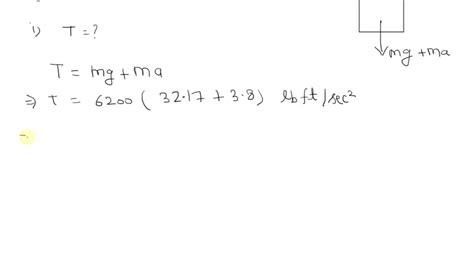 i) T = ?
mg + ma
T = mg + ma
⇒ T = 6200 ( 32.17 + 3.8) lb ft/sec²